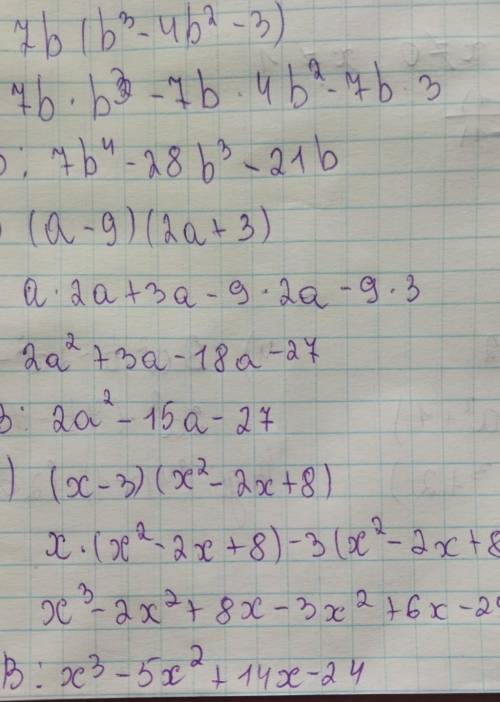 7b (b³ - 4b² - 3)
7b · b³ - 7b · 4b² - 7b · 3
: 7b⁴ - 28b³ - 21b
(a - 9)(2a + 3)
a · 2a + 3a - 9 · 2a - 9 · 3
2a² + 3a - 18a - 27
В: 2a² - 15a - 27
) (x - 3)(x² - 2x + 8)
x · (x² - 2x + 8) - 3(x² - 2x + 8
x³ - 2x² + 8x - 3x² + 6x - 24
В: x³ - 5x² + 14x - 24